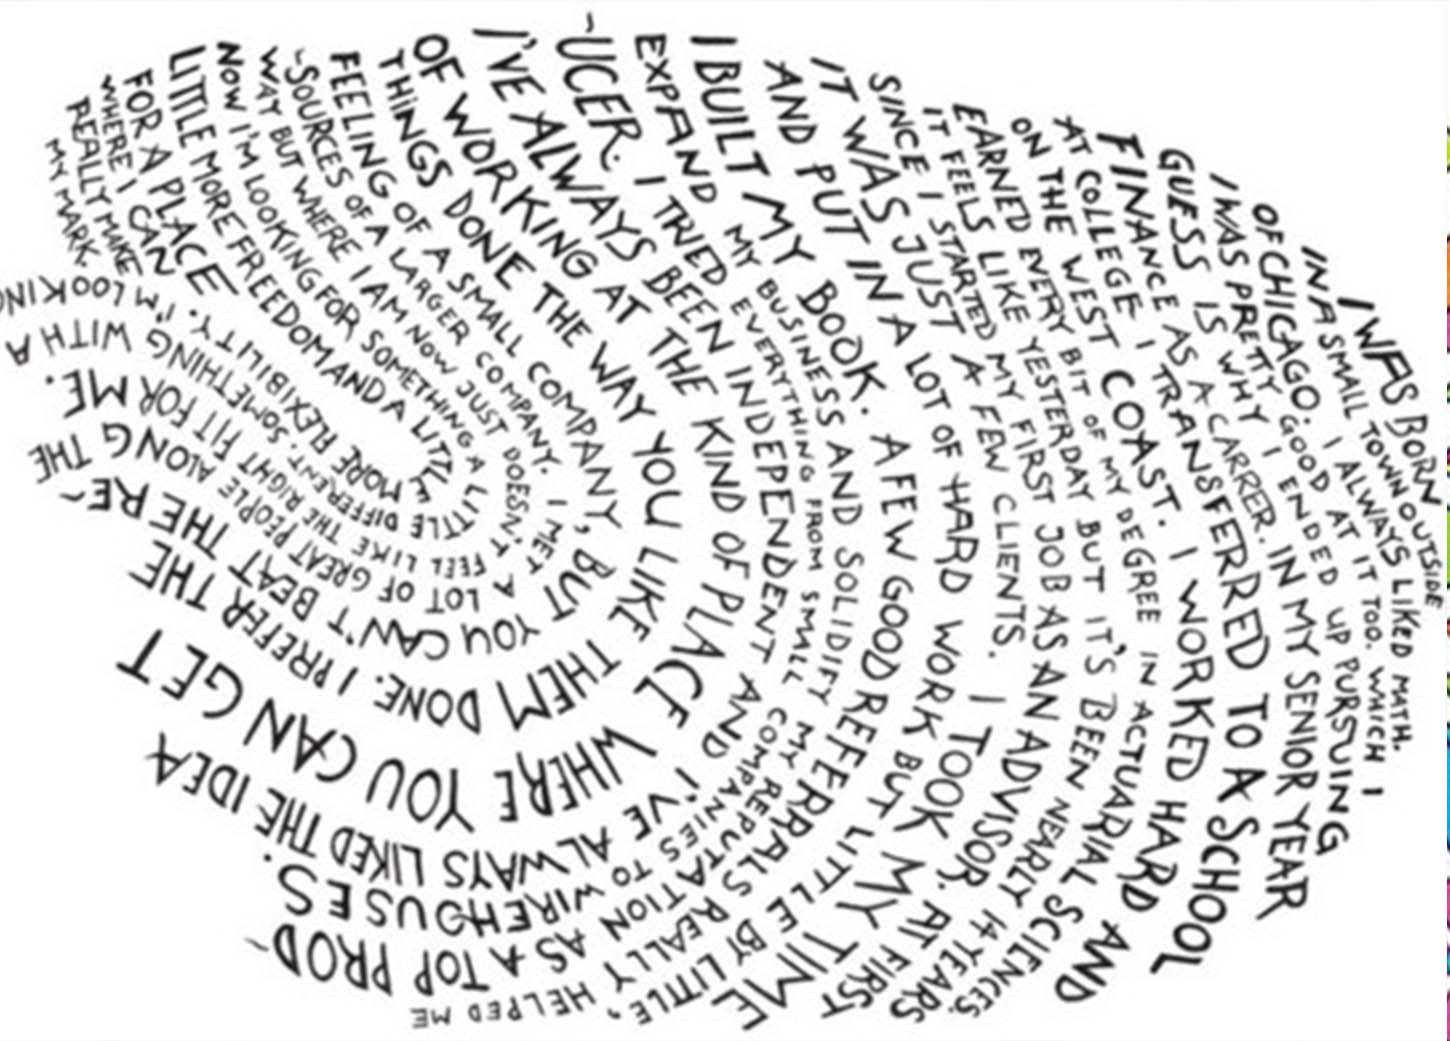 I WAS BORN
IN A SMALL TOWN OUTSIDE
OF CHICAGO. I ALWAYS LIKED MATH.
I WAS PRETTY GOOD AT IT TOO. WHICH I
GUESS IS WHY I ENDED UP PURSUING
FINANCE AS A CARRER. IN MY SENIOR YEAR
AT COLLEGE I TRANSFERRED TO A SCHOOL
ON THE WEST COAST. I WORKED HARD AND
EARNED EVERY BIT OF MY DEGREE IN ACTUARIAL SCIENCES.
IT FEELS LIKE YESTERDAY BUT IT'S BEEN NEARLY 14 YEARS
SINCE I STARTED MY FIRST JOB AS AN ADVISOR. AT FIRST
IT WAS JUST A FEW CLIENTS. I TOOK MY TIME
AND PUT IN A LOT OF HARD WORK BUT LITTLE BY LITTLE,
I BUILT MY BOOK. A FEW GOOD REFERRALS REALLY HELPED ME
EXPAND MY BUSINESS AND SOLIDIFY MY REPUTATION AS A TOP PROD-
-UCER. I TRIED EVERYTHING FROM SMALL COMPANIES TO WIREHOUSES.
I'VE ALWAYS BEEN INDEPENDENT AND I'VE ALWAYS LIKED THE IDEA
OF WORKING AT THE KIND OF PLACE WHERE YOU CAN GET
THINGS DONE THE WAY YOU LIKE THEM DONE. I PREFER THE
FEELING OF A SMALL COMPANY, BUT YOU CAN'T BEAT THE RE-
-SOURCES OF A LARGER COMPANY. I MET A LOT OF GREAT PEOPLE ALONG THE
WAY BUT WHERE I AM NOW JUST DOESN'T FEEL LIKE THE RIGHT FIT FOR ME.
NOW I'M LOOKING FOR SOMETHING A LITTLE DIFFERENT. SOMETHING WITH A
LITTLE MORE FREEDOM AND A LITTLE MORE FLEXIBILITY. I'M LOOKING
FOR A PLACE
WHERE I CAN
REALLY MAKE
MY MARK